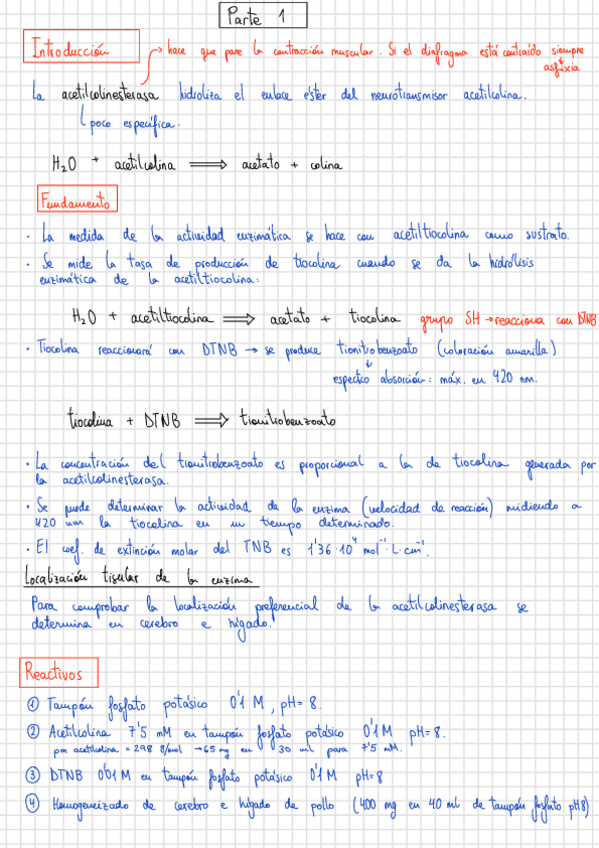 Parte 1
Introducción
hace que pare la contracción muscular. Si el diafragma está contraído siempre
asfixia
La acetilcolinesterasa hidroliza el enlace éster del neurotransmisor acetilcolina.
poco específica.
H₂O + acetilcolina ⟹ acetato + colina
Fundamento
· La medida de la actividad enzimática se hace con acetiltiocolina como sustrato.
· Se mide la tasa de producción de tiocolina cuando se da la hidrólisis
enzimática de la acetiltiocolina:
H₂O + acetiltiocolina ⟹ acetato + tiocolina grupo SH → reacciona con DTNB
· Tiocolina reaccionará con DTNB → se produce tionitrobenzoato (coloración amarilla)
espectro absorción: máx. en 420 nm.
tiocolina + DTNB ⟹ tionitrobenzoato
· La concentración del tionitrobenzoato es proporcional a la de tiocolina generada por
la acetilcolinesterasa.
· Se puede determinar la actividad de la enzima (velocidad de reacción) midiendo a
420 nm la tiocolina en un tiempo determinado.
· El coef. de extinción molar del TNB es 1'36·10⁴ mol⁻¹·L·cm⁻¹.
Localización tisular de la enzima
Para comprobar la localización preferencial de la acetilcolinesterasa se
determina en cerebro e hígado.
Reactivos
① Tampón fosfato potásico 0'1 M, pH= 8.
② Acetilcolina 7'5 mM en tampón fosfato potásico 0'1 M pH= 8.
pm acetilcolina = 298 g/mol → 65 mg en 30 ml para 7'5 mM.
③ DTNB 0'01 M en tampón fosfato potásico 0'1 M pH=8
④ Homogeneizado de cerebro e hígado de pollo (400 mg en 40 ml de tampón fosfato pH8)